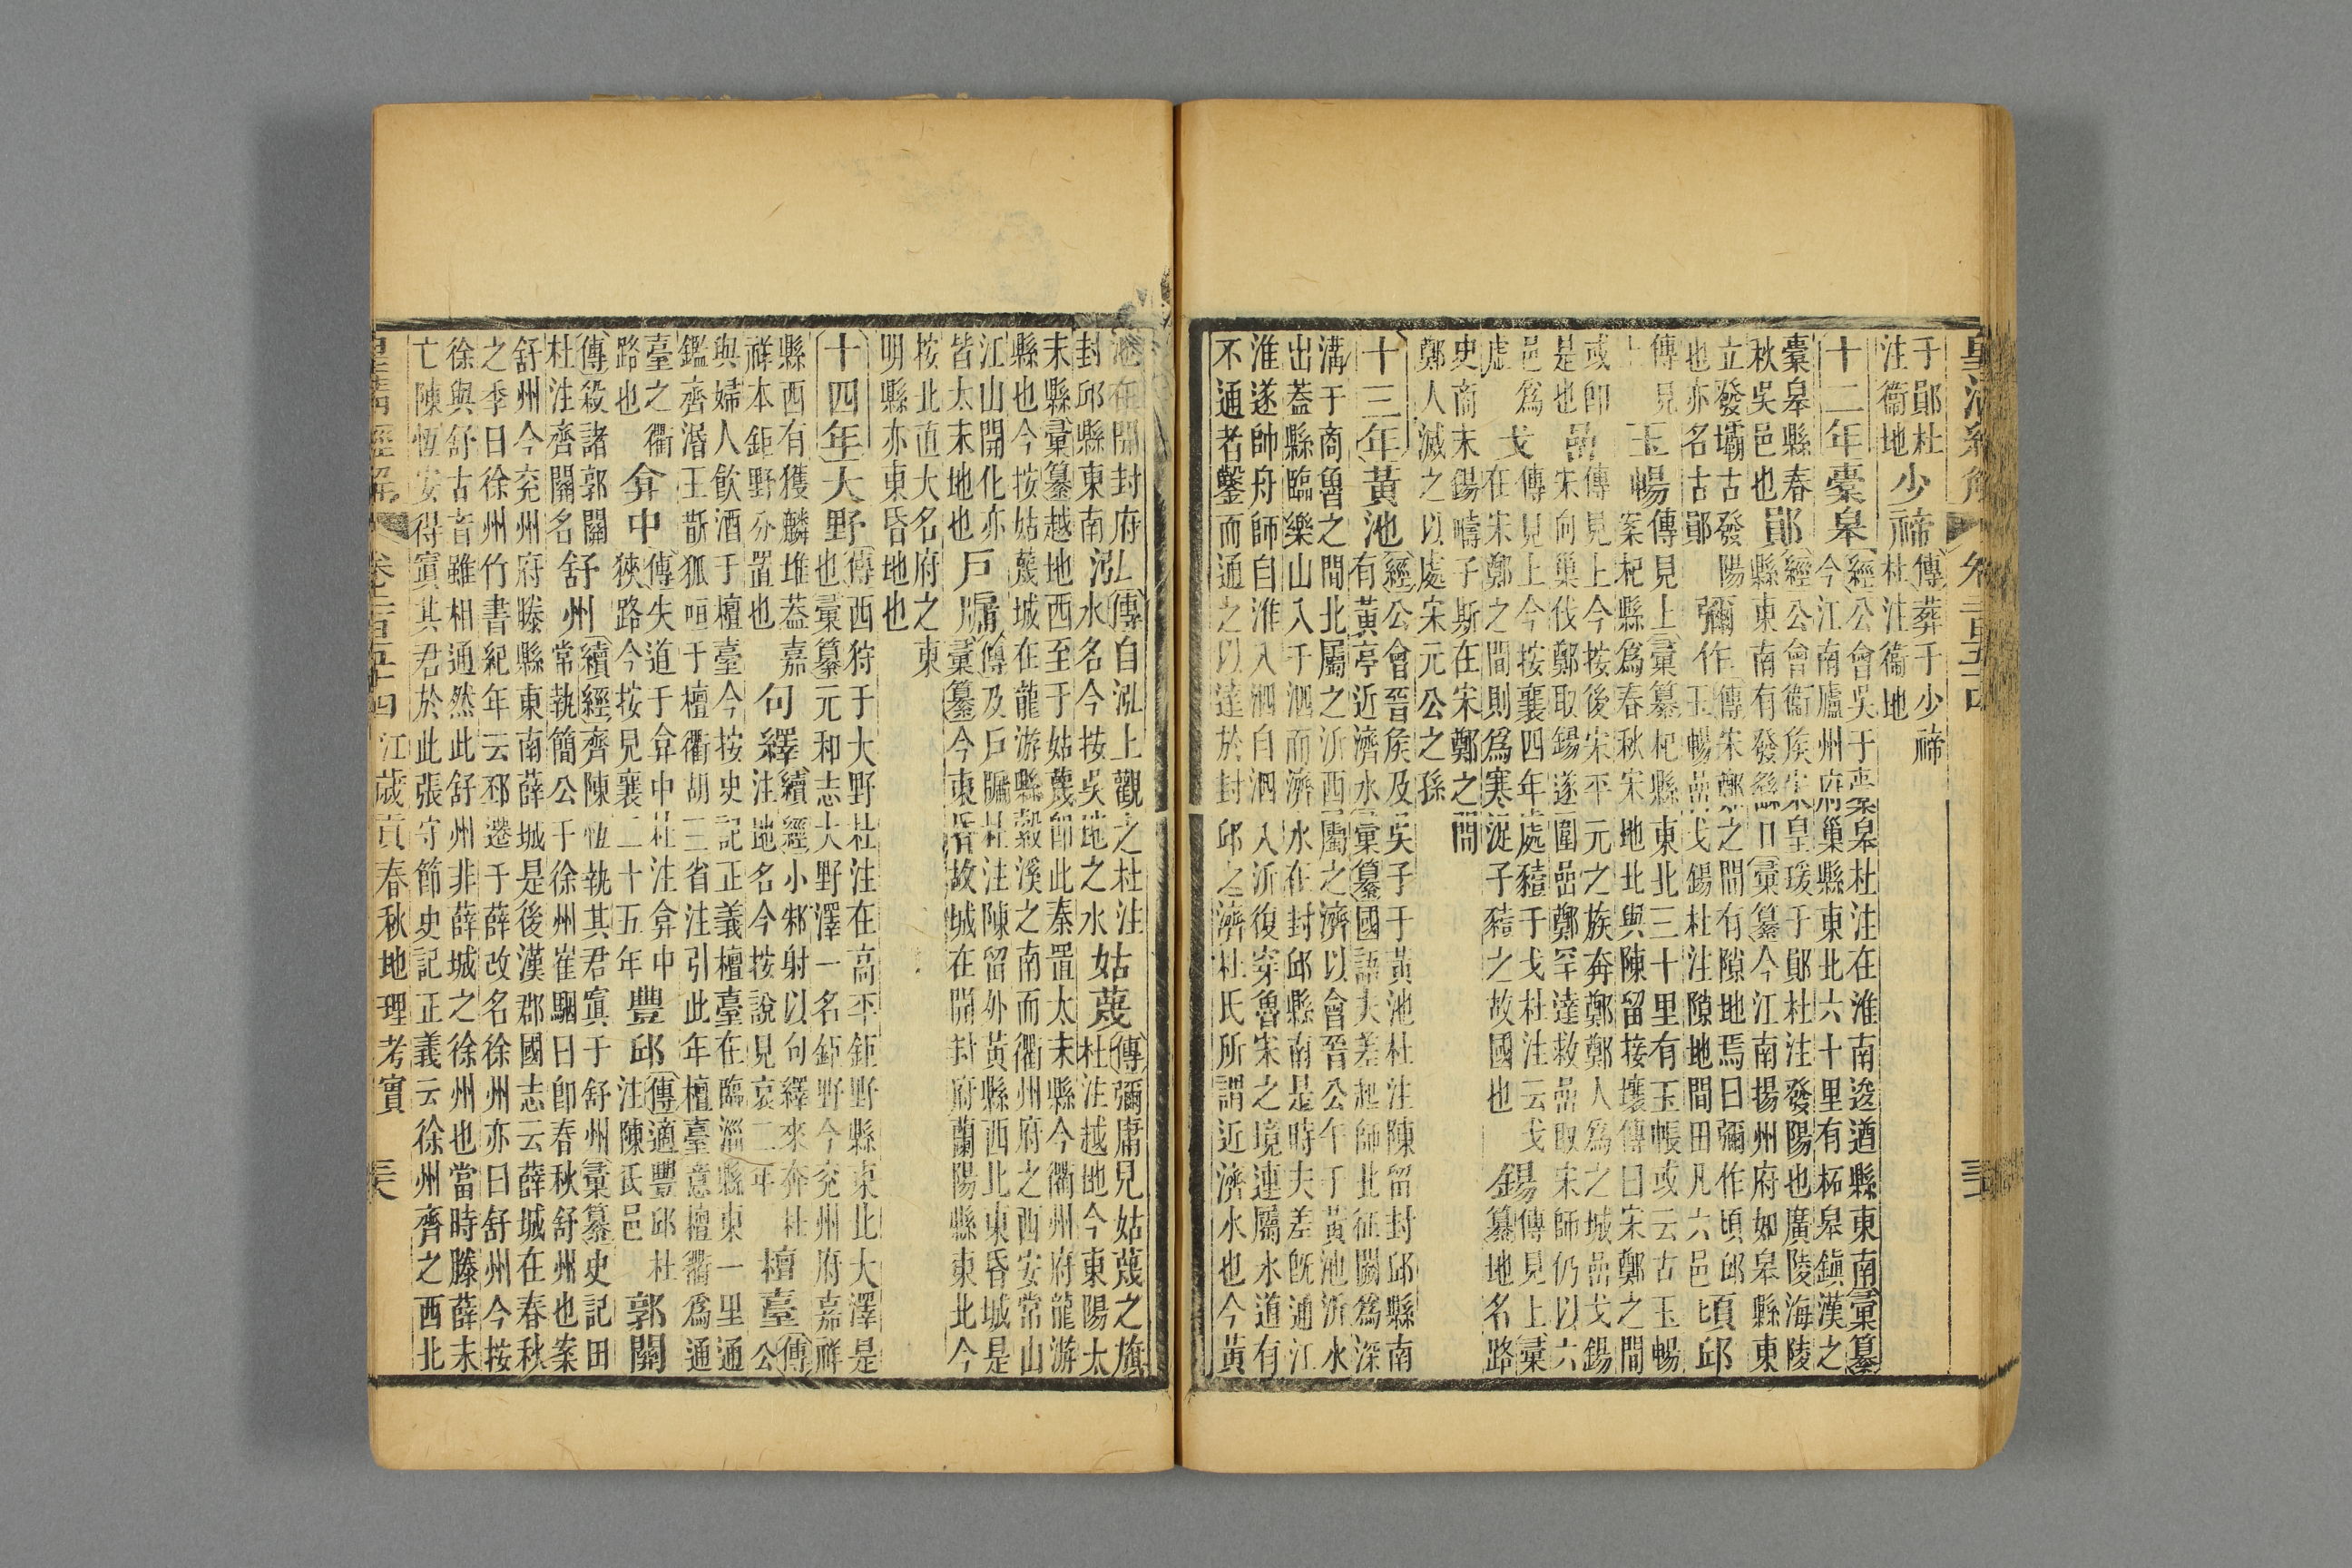 皇清經解 卷二百五十四
于鄖杜注衞地 少禘 傳葬于少禘杜注衞地
十二年 橐皋 經公會吳于橐皋杜注在淮南逡遒縣東南彙纂今江南廬州府巢縣東北六十里有柘皋鎮漢之
橐皋縣春秋吳邑也 鄖 經公會衞矦宋皇瑗于鄖杜注發陽也廣陵海陵縣東南有發繇口彙纂今江南揚州府如皋縣東
立發壩古發陽也亦名古鄖 彌作 傳宋鄭之間有隙地焉曰彌作頃邱玉暢嵒戈錫杜注隙地間田凡六邑 頃邱
傳見上 玉暢 傳見上彙纂杞縣東北三十里有玉帳或云古玉暢案杞縣為春秋宋地北與陳留接壤傳曰宋鄭之間
或卽是也 嵒 傳見上今按後宋平元之族奔鄭鄭人為之城嵒戈錫宋向巢伐鄭取錫遂圍嵒鄭罕達救嵒取宋師仍以六
邑為虗 戈 傳見上今按襄四年處豷于戈杜注云戈在宋鄭之間則為寒浞子豷之故國也 錫 傳見上彙纂地名路
史商末錫疇子斯在宋鄭之間鄭人滅之以處宋元公之孫
十三年 黃池 經公會晉矦及吳子于黃池杜注陳留封邱縣南有黃亭近濟水彙纂國語夫差起師北征闕為深
溝于商魯之間北屬之沂西屬之濟以會晉公午于黃池沂水出蓋縣臨樂山入于泗而濟水在封邱縣南是時夫差旣通江
淮遂帥舟師自淮入泗自泗入沂復穿魯宋之境連屬水道有不通者鑿而通之以達於封邱之濟杜氏所謂近濟水也今黃
池在開封府封邱縣東南 泓 傳自泓上觀之杜注水名今按吳地之水 姑蔑 傳彌庸見姑蔑之旗杜注越地今東陽太
末縣彙纂越地西至于姑蔑卽此秦置太末縣今衢州府龍游縣也今按姑蔑城在龍游縣穀溪之南而衢州府之西安常山
江山開化亦皆太末地也 戶牖 傳及戶牖杜注陳留外黃縣西北東昏城是彙纂今東昏故城在開封府蘭陽縣東北今
按北直大名府之東明縣亦東昏地也
十四年 大野 傳西狩于大野杜注在高平鉅野縣東北大澤是也彙纂元和志大野澤一名鉅野今兖州府嘉祥
縣西有獲麟堆葢嘉祥本鉅野分置也 句繹 續經小邾射以句繹來奔杜注地名今按說見哀二年 檀臺 傳公
與婦人飲酒于檀臺今按史記正義檀臺在臨淄縣東一里通鑑齊湣王斮狐咺于檀衢胡三省注引此年檀臺意檀衢為通
臺之衢路也 弇中 傳失道于弇中杜注弇中狹路今按見襄二十五年 豐邱 傳適豐邱杜注陳氏邑 郭關
傳殺諸郭關杜注齊關名 舒州 續經齊陳恆執其君寘于舒州彙纂史記田常執簡公于徐州崔駰曰卽春秋舒州也案
舒州今兖州府滕縣東南薛城是後漢郡國志云薛城在春秋之季曰徐州竹書紀年云邳遷于薛改名徐州亦曰舒州今按
徐與舒古音雖相通然此舒州非薛城之徐州也當時滕薛未亡陳恆安得寘其君於此張守節史記正義云徐州齊之西北
皇清經解 卷二百五十四 江歲貢春秋地理考實 三六